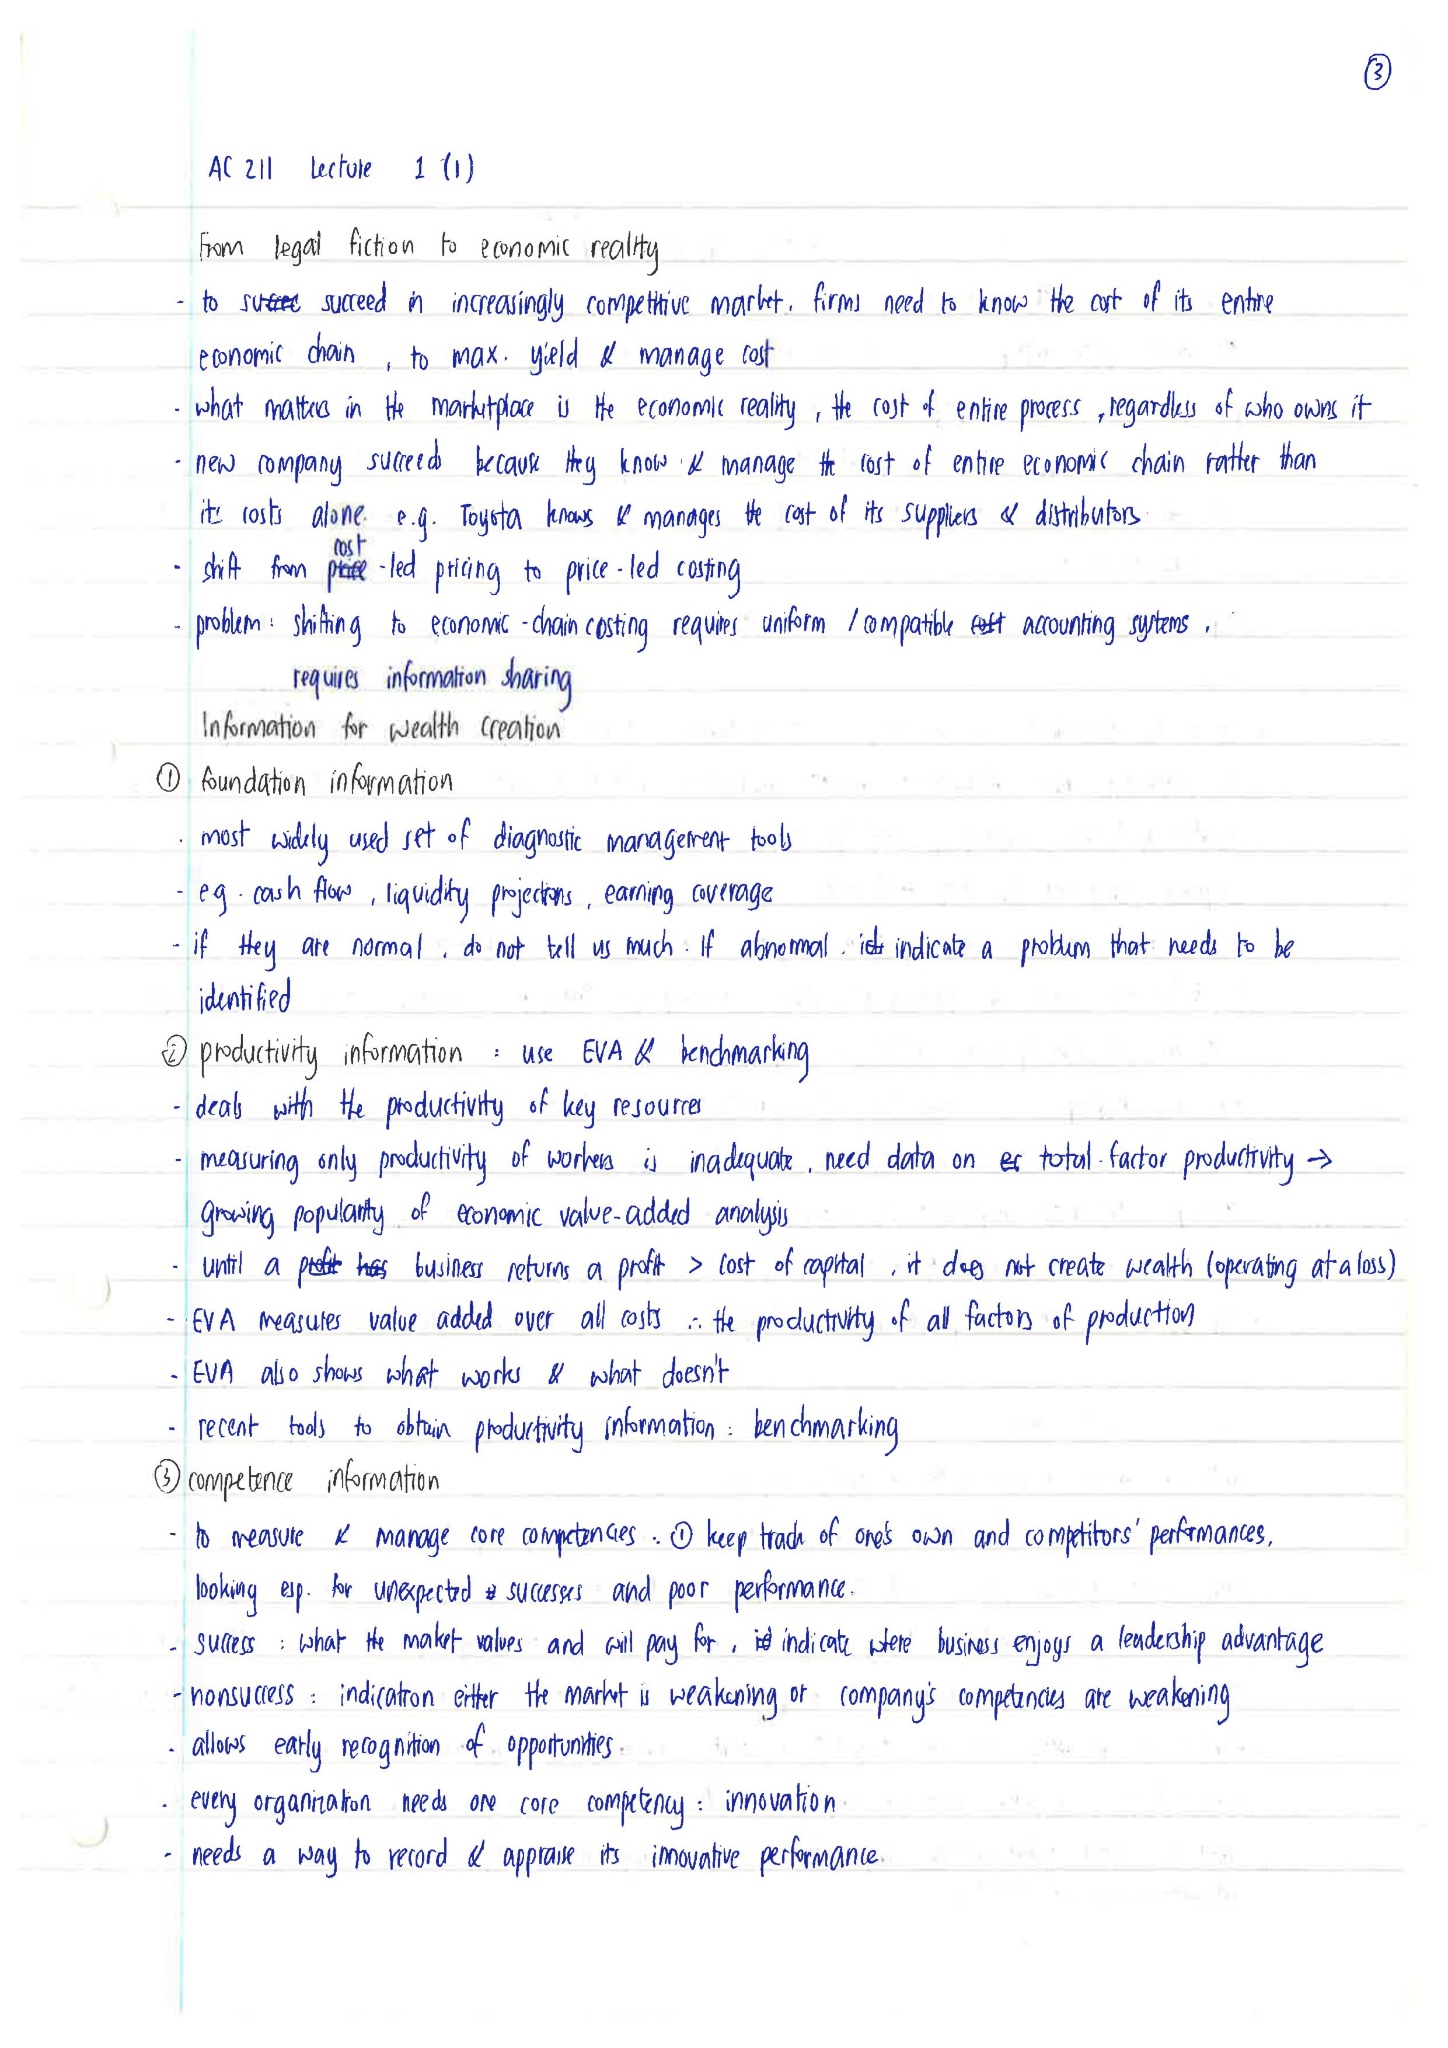 3
AC 211 Lecture 1 (1)
From legal fiction to economic reality
- to succeed in increasingly competitive market, firms need to know the cost of its entire
economic chain, to max. yield & manage cost
- what matters in the marketplace is the economic reality, the cost of entire process, regardless of who owns it
- new company succeeds because they know & manage the cost of entire economic chain ratther than
its costs alone. e.g. Toyota knows & manages the cost of its suppliers & distributors
cost
- shift from price-led pricing to price-led costing
- problem: shifting to economic-chain costing requires uniform / compatible cost accounting systems,
requires information sharing
Information for wealth creation
① foundation information
- most widely used set of diagnostic management tools
- eg. cash flow, liquidity projections, earning coverage
- if they are normal, do not tell us much. If abnormal, indicate a problem that needs to be
identified
② productivity information : use EVA & benchmarking
- deals with the productivity of key resources
- measuring only productivity of workers is inadequate, need data on total-factor productivity →
growing popularity of economic value-added analysis
- until a profit has business returns a profit > cost of capital, it does not create wealth (operating at a loss)
- EVA measures value added over all costs ∴ the productivity of all factors of production
- EVA also shows what works & what doesn't
- recent tools to obtain productivity information: benchmarking
③ competence information
- to measure & manage core competencies: ① keep track of one's own and competitors' performances,
looking esp. for unexpected successes and poor performance.
- success: what the market values and will pay for, indicate where business enjoys a leadership advantage
- nonsuccess: indication either the market is weakening or company's competencies are weakening
- allows early recognition of opportunities.
- every organization needs one core competency: innovation.
- needs a way to record & appraise its innovative performance.